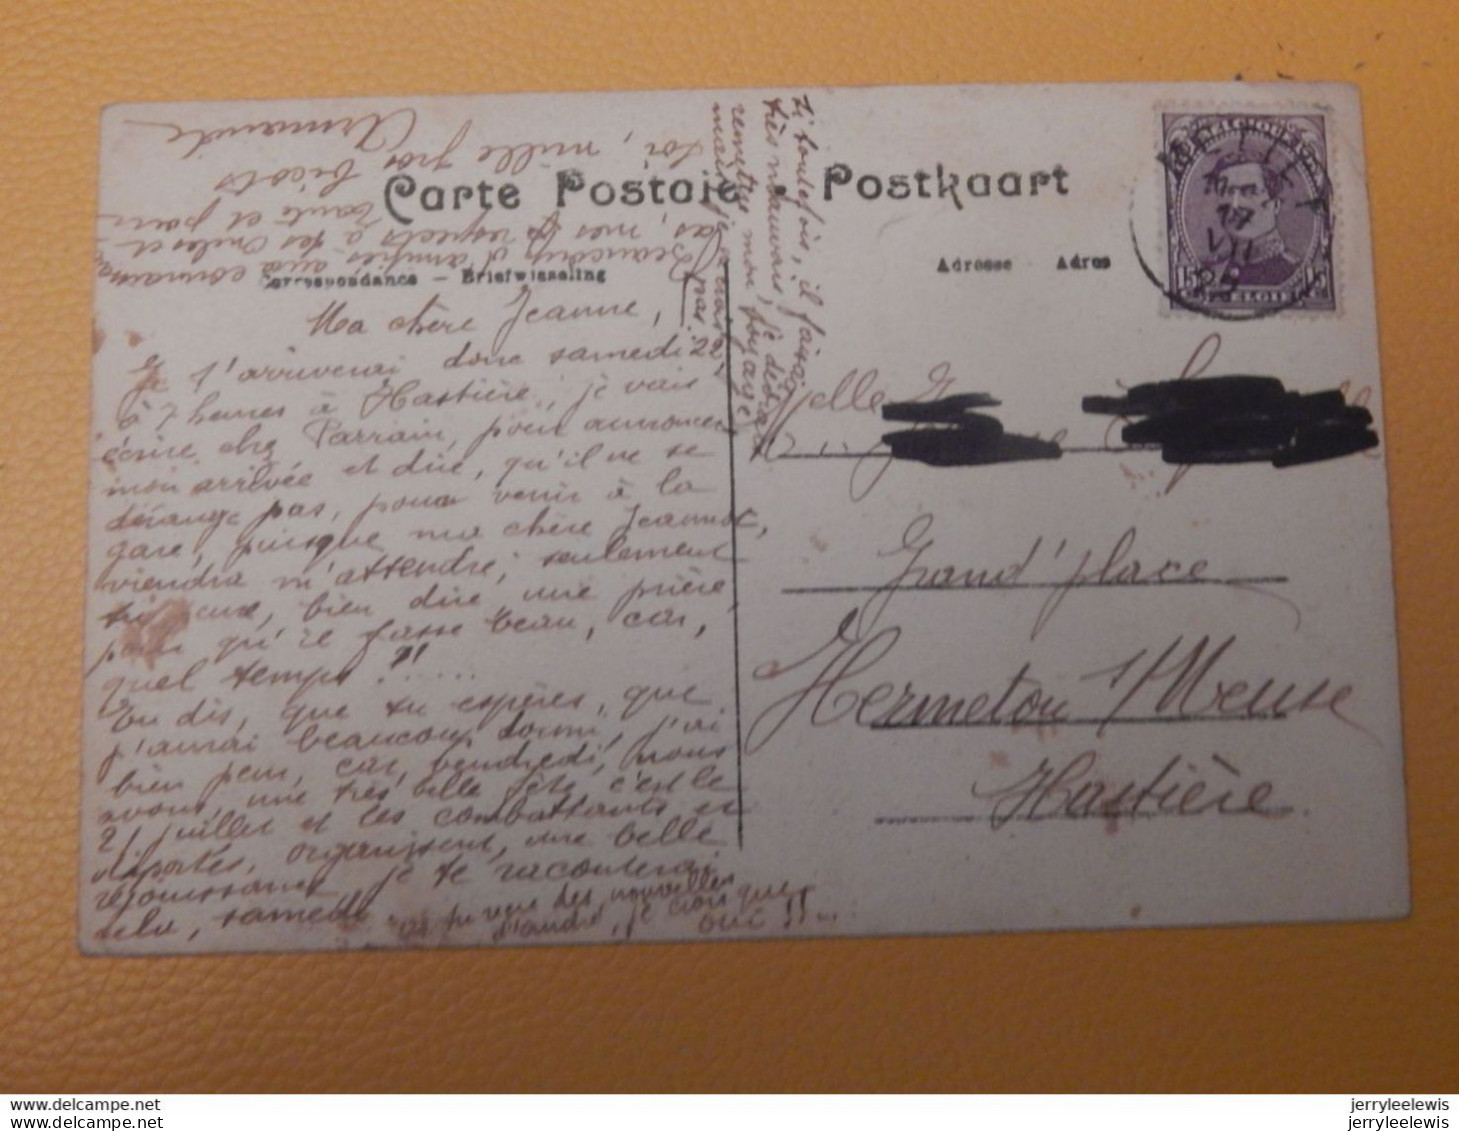 Carte Postale Postkaart
Correspondance - Briefwisseling
Adresse - Adres
Ma chère Jeanne,
Je t'arriverai donc samedi 22
à 7 heures à Hastière, je vais
écrire chez Parrain, pour annoncer
mon arrivée et dire, qu'il ne se
dérange pas, pour venir à la
gare, puisque ma chère Jeannot,
viendra m'attendre, seulement
bien dire une prière,
pour qu'il fasse beau, car,
quel temps?!......
Tu dis, que tu espères, que
j'aurai beaucoup dormi, j'ai
bien peur, car, vendredi, nous
avons, une très belle fête, c'est le
21 juillet et les combattants et
déportés, organisent, une belle
réjouissance, je te raconterai
cela, samedi
as tu reçu des nouvelles
d'André, je crois que
oui!!...
Si toutefois, il faisait
très mauvais, je devrais
remettre mon voyage
mais je ne crois
pas.
Beaucoup d'amitiés aux connaissan
ces, mes respects à tes Oncles et
tante et pour
toi, mille gros bécots
Armande
Melle
Grand'place
Hermeton s/Meuse
Hastière
BELGIE
15
17
VII
jerryleelewis
jerryleelewis
jerryleelewis
jerryleelewis